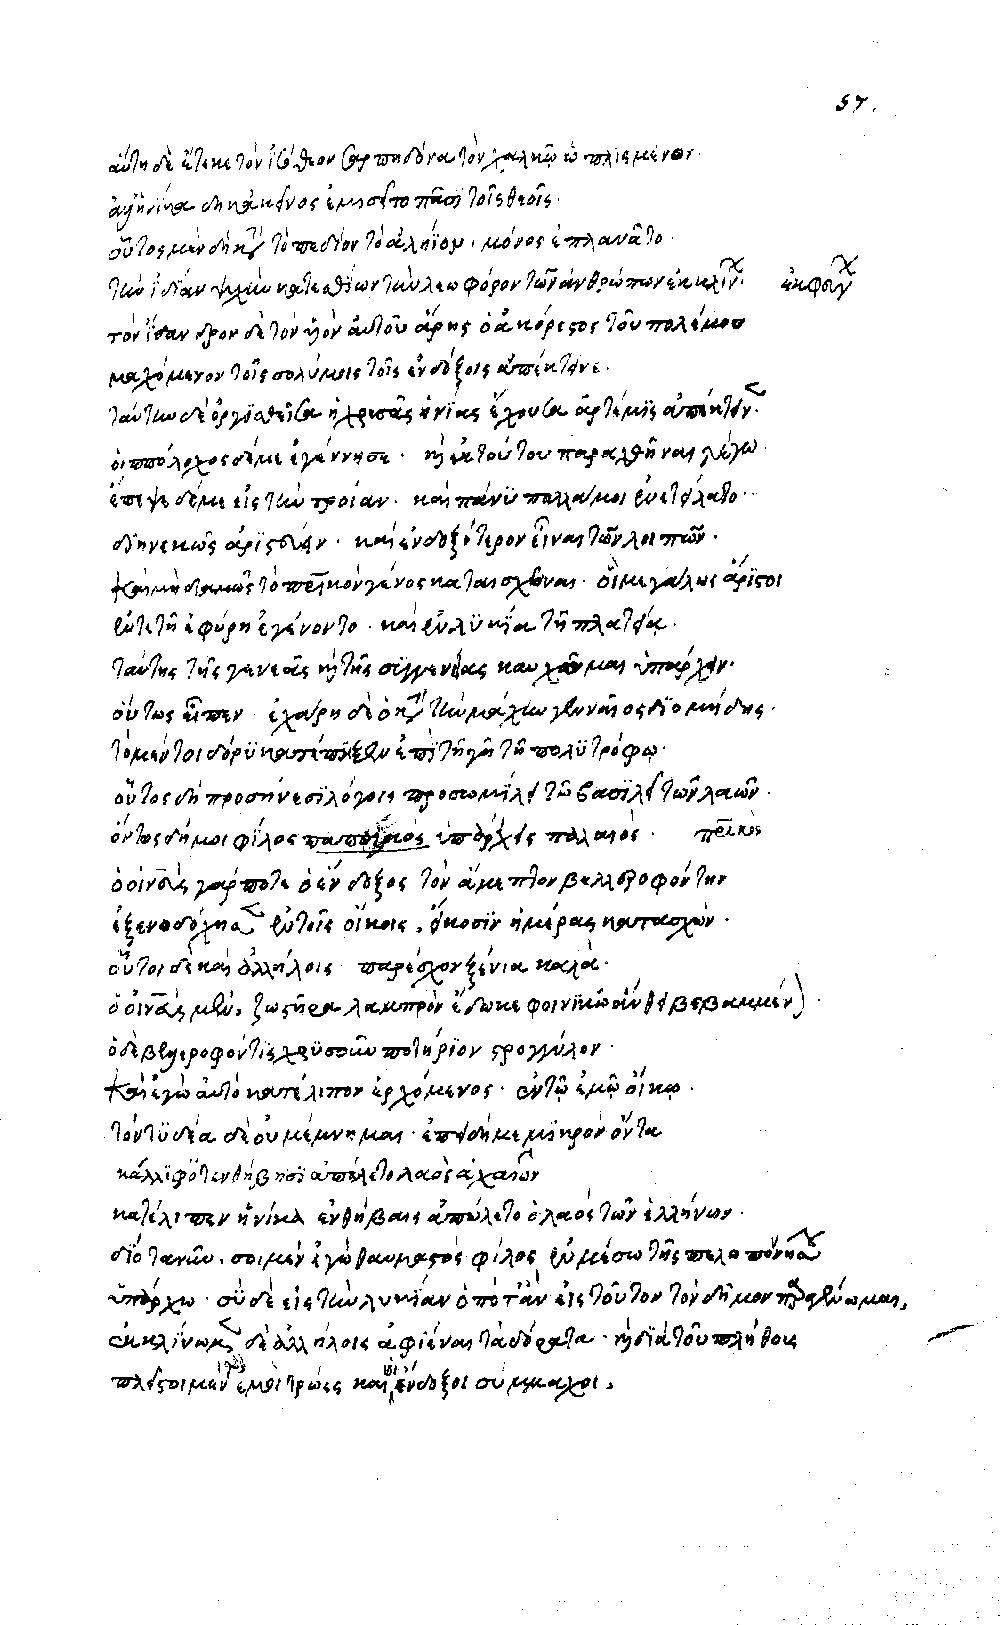 57.
αὕτη δὲ ἔτεκε τὸν ἰσόθεον σαρπηδόνα τὸν χαλκῷ ὡπλισμένον.
ἀφ' ἡνίκα δὴ κἀκεῖνος ἐμισεῖτο πᾶσι τοῖς θεοῖς.
οὗτος μὲν δὴ κατὰ τὸ πεδίον τὸ ἀλήϊον. μόνος ἐπλανᾶτο.
τὴν ἰδίαν ψυχὴν κατεσθίων τὴν λεωφόρον τῶν ἀνθρώπων ἐκκλίν. ἐκφευγ
τὸν ἴσανδρον δὲ τὸν υἱὸν αὐτοῦ ἄρης ὁ ἀκόρεστος τοῦ πολέμου
μαχόμενον τοῖς σολύμοις τοῖς ἐνδόξοις ἀπέκτεινε.
ταύτην δὲ ὀργισθεῖσα ἡ χρυσᾶς ἡνίας ἔχουσα ἄρτεμις ἀπέκτεινεν.
ὁ ἱππόλοχος δέ με ἐγέννησε. καὶ ἐκ τούτου παραχθῆναι λέγω.
ἔπεψε δέ με εἰς τὴν τροίαν. καὶ πάνυ πολλά μοι ἐνετείλατο.
διηνεκῶς ἀριστεύειν. καὶ ἐνδοξότερον εἶναι τῶν λοιπῶν.
καὶ μηδαμῶς τὸ πατρικὸν γένος καταισχῦναι. οἳ μεγάλως ἄριστοι
ἔν τε τῇ ἐφύρῃ ἐγένοντο. καὶ ἐν λυκίᾳ τῇ πλατείᾳ.
ταύτης τῆς γενεᾶς καὶ τῆς συγγενείας καυχῶμαι ὑπάρχειν.
οὕτως εἶπεν. ἐχάρη δὲ ὁ κατὰ τὴν μάχην γενναῖος διομήδης.
τὸ μέντοι δόρυ κατέπηξεν ἐπὶ τῇ γῇ τῇ πολυτρόφῳ.
οὗτος δὴ προσηνέσι λόγοις προσωμίλει τῷ βασιλεῖ τῶν λαῶν.
ὄντως δή μοι φίλος παπποιμιὸς ὑπάρχεις παλαιός. πατρικὸς
ὁ οἰνεὺς γάρ ποτε ὁ ἔνδοξος τὸν ἄμεμπτον βελλεροφόντην
ἐξενοδόχησεν ἐν τοῖς οἴκοις. εἴκοσιν ἡμέρας κατασχών.
οὗτοι δὲ καὶ ἀλλήλοις παρέσχον ξένια καλά.
ὁ οἰνεὺς μὲν, ζωστῆρα λαμπρὸν ἔδωκε φοινικῷ ἄνθει βεβαμμένον.
ὁ δὲ βελλεροφόντης χρυσοῦν ποτήριον στρογγύλον.
καὶ ἐγὼ αὐτὸ κατέλιπον ἐρχόμενος. ἐν τῷ ἐμῷ οἴκῳ.
τὸν τυδέα δὲ οὐ μέμνημαι. ἐπειδή με μικρὸν ὄντα
κάλλιφ' ὅτ' ἐν θήβησι ἀπώλετο λαὸς ἀχαιῶν
κατέλιπεν ἡνίκα ἐν θήβαις ἀπώλετο ὁ λαὸς τῶν ἑλλήνων.
διὸ τανῦν. σοι μὲν ἐγὼ θαυμαστὸς φίλος ἐν μέσῳ τῆς πελοποννήσου
ὑπάρχω. σὺ δὲ εἰς τὴν λυκίαν ὁπόταν εἰς τοῦτον τὸν δῆμον παραγένωμαι.
ἐκκλίνωμεν δὲ ἀλλήλοις ἀφιέναι τὰ δόρατα. καὶ διὰ τοῦ πλήθους
πλεῖστοι μὲν ἐμοὶ τρῶες καὶ οἱ ἔνδοξοι σύμμαχοι.